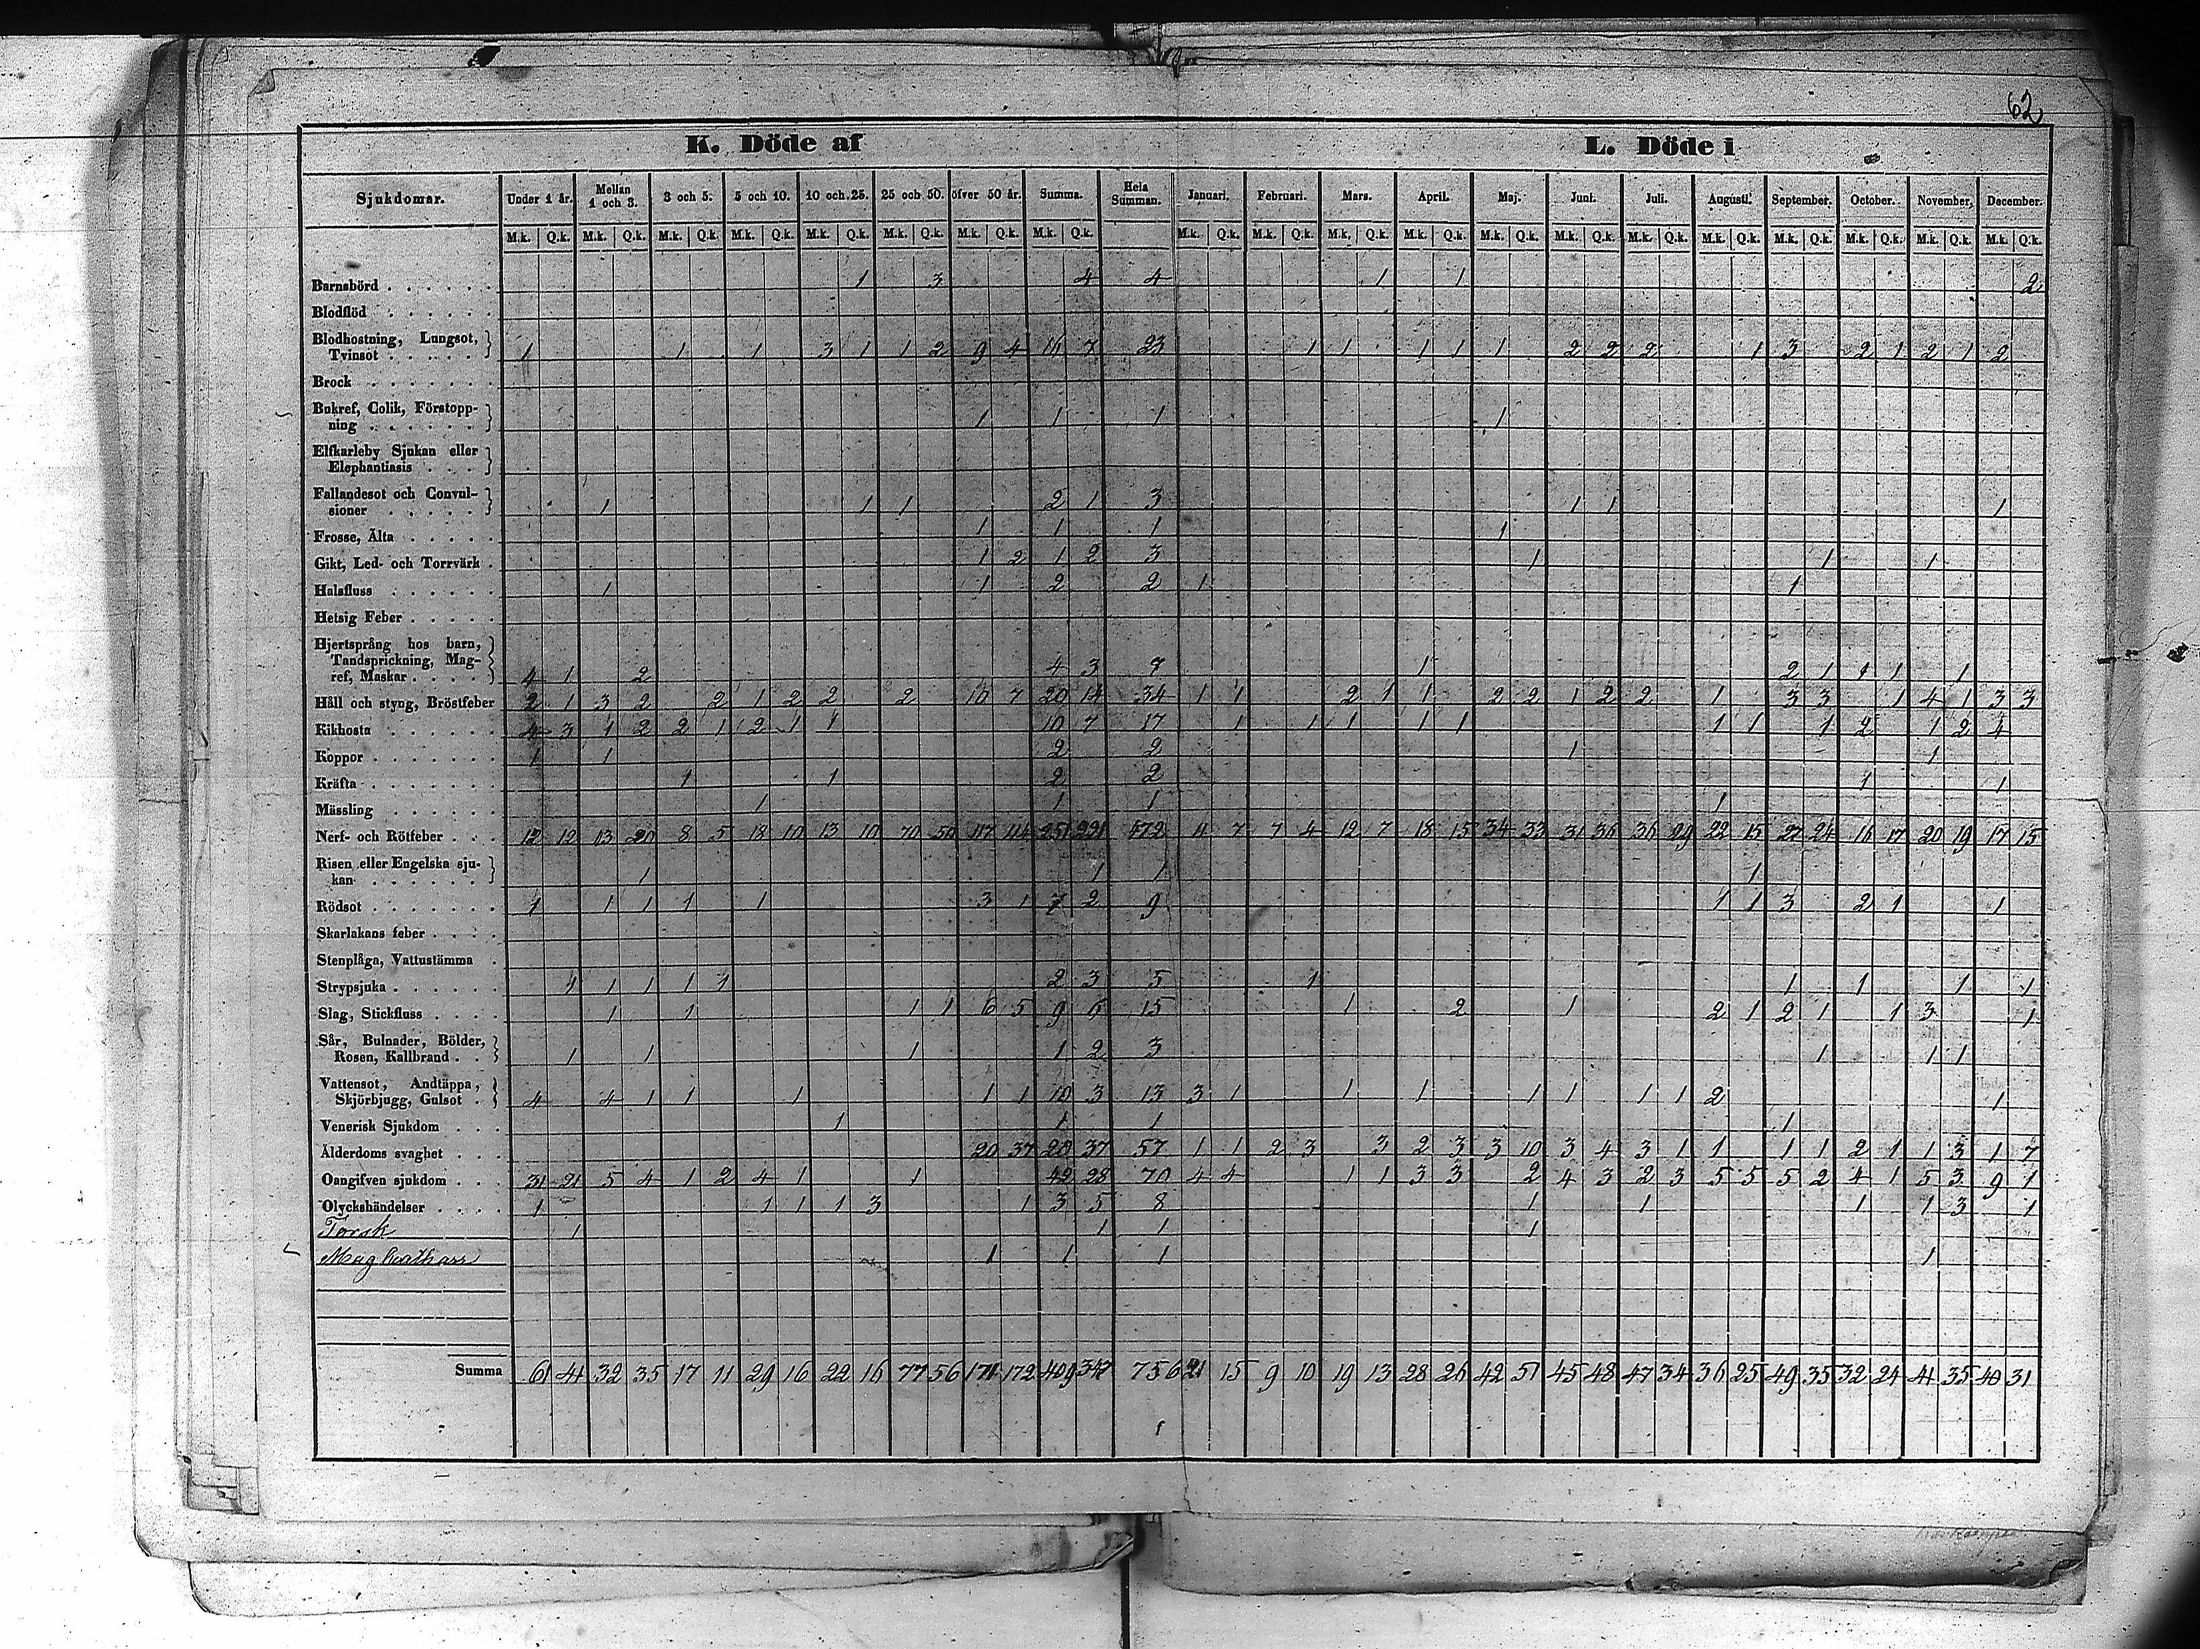 62
K. Döde af L. Döde i
Sjukdomar. Under 1 år. Mellan 1 och 3. 3 och 5. 5 och 10. 10 och 25. 25 och 50. öfver 50 år. Summa. Hela Summan. Januari. Februari. Mars. April. Maj. Juni. Juli. Augusti. September. October. November. December.
M.k. Q.k. M.k. Q.k. M.k. Q.k. M.k. Q.k. M.k. Q.k. M.k. Q.k. M.k. Q.k. M.k. Q.k. M.k. Q.k. M.k. Q.k. M.k. Q.k. M.k. Q.k. M.k. Q.k. M.k. Q.k. M.k. Q.k. M.k. Q.k. M.k. Q.k. M.k. Q.k. M.k. Q.k. M.k. Q.k.
Barnsbörd . . . . . . 1 3 4 4 1 1 2
Blodflöd . . . . . .
Blodhostning, Lungsot,
Tvinsot . . . . . 1 1 1 3 1 1 2 9 4 16 7 23 1 1 1 1 1 2 2 2 1 3 2 1 2 1 2
Brock . . . . . . .
Bukref, Colik, Förstopp-
ning . . . . . . 1 1 1 1
Elfkarleby Sjukan eller
Elephantiasis . . .
Fallandesot och Convul-
sioner . . . . . 1 1 1 2 1 3 1 1 1
Frosse, Älta . . . . . 1 1 1 1
Gikt, Led- och Torrvärk . 1 2 1 2 3 1 1 1
Halsfluss . . . . . . 1 1 2 2 1 1
Hetsig Feber . . . . .
Hjertsprång hos barn,
Tandsprickning, Mag-
ref, Maskar . . . . 4 1 2 4 3 7 1 2 1 1 1 1
Håll och styng, Bröstfeber 2 1 3 2 2 1 2 2 2 10 7 20 14 34 1 1 2 1 1 2 2 1 2 2 1 3 3 1 4 1 3 3
Kikhosta . . . . . . 4 3 1 2 2 1 2 1 1 10 7 17 1 1 1 1 1 1 1 1 2 1 2 4
Koppor . . . . . . . 1 1 2 2 1 1
Kräfta . . . . . . . 1 1 2 2 1 1
Mässling . . . . . . 1 1 1 1
Nerf- och Rötfeber . . . 12 12 13 20 8 5 18 10 13 10 70 50 117 114 251 221 472 11 7 7 4 12 7 18 15 34 33 31 36 36 29 22 15 27 24 16 17 20 19 17 15
Risen eller Engelska sju-
kan . . . . . . 1 1 1 1
Rödsot . . . . . . . 1 1 1 1 1 3 1 7 2 9 1 1 3 2 1 1
Skarlakans feber . . . .
Stenplåga, Vattustämma .
Strypsjuka . . . . . . 1 1 1 1 1 2 3 5 1 1 1 1 1
Slag, Stickfluss . . . . 1 1 1 1 6 5 9 6 15 1 2 1 2 1 2 1 1 3 1
Sår, Bulnader, Bölder,
Rosen, Kallbrand . . 1 1 1 1 2 3 1 1 1
Vattensot, Andtäppa,
Skjörbjugg, Gulsot . 4 4 1 1 1 1 1 10 3 13 3 1 1 1 1 1 1 1 2 1
Venerisk Sjukdom . . . 1 1 1 1
Ålderdoms svaghet . . . 20 37 20 37 57 1 1 2 3 3 2 3 3 10 3 4 3 1 1 1 1 2 1 1 3 1 7
Oangifven sjukdom . . . 31 21 5 4 1 2 4 1 1 42 28 70 4 4 1 1 3 3 2 4 3 2 3 5 5 5 2 4 1 5 3 9 1
Olyckshändelser . . . . 1 1 1 1 3 1 3 5 8 1 1 1 1 3 1
Torsk 1 1 1 1
1 1 1 1
Summa 61 41 32 35 17 11 29 16 22 16 77 56 171 172 409 347 756 21 15 9 10 19 13 28 26 42 51 45 48 47 34 36 25 49 35 32 24 41 35 40 31